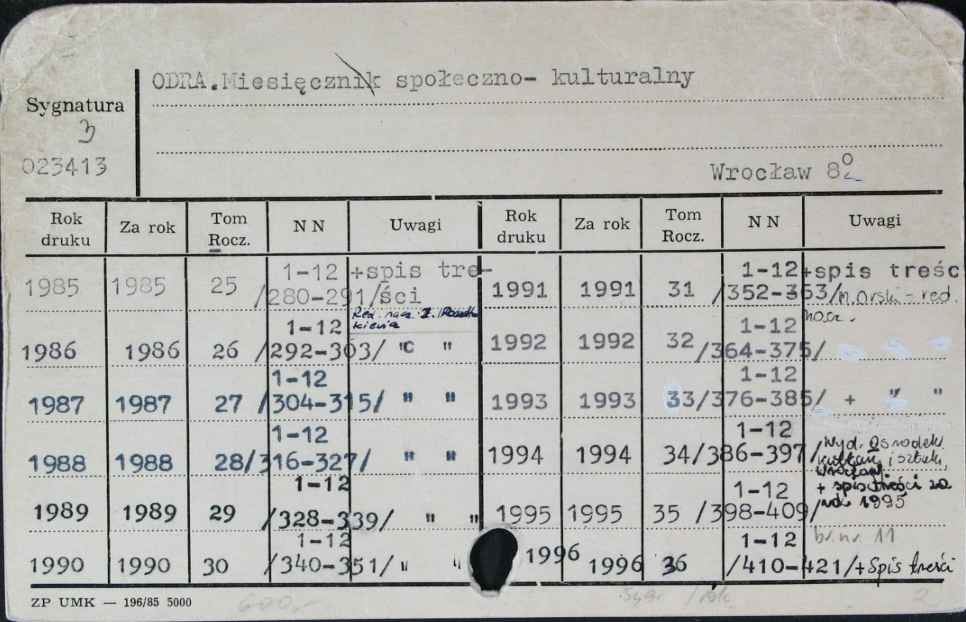 ODRA.Miesięcznik społeczno- kulturalny
Sygnatura
3
023413
Wrocław 8°
Rok druku Za rok Tom Rocz. N N Uwagi
1985 1985 25 1-12 /280-291/ +spis treści
Red. nacz. Z.
1986 1986 26 1-12 /292-303/ "C "
1987 1987 27 1-12 /304-315/ " "
1988 1988 28 1-12 /316-327/ " "
1989 1989 29 1-12 /328-339/ " "
1990 1990 30 1-12 /340-351/ " "
Rok druku Za rok Tom Rocz. N N Uwagi
1991 1991 31 1-12 /352-363/ +spis treśc
M. Orski - red.
nacz.
1992 1992 32 1-12 /364-375/
1993 1993 33 1-12 /376-385/ + " "
1994 1994 34 1-12 /386-397/ Wyd. Ośrodek
kultury i sztuki,
Wrocław
1995 1995 35 1-12 /398-409/ + spis treści za
rok 1995
br. nr. 11
1996 1996 36 1-12 /410-421/ + Spis treści
ZP UMK — 196/85 5000
600,-
2